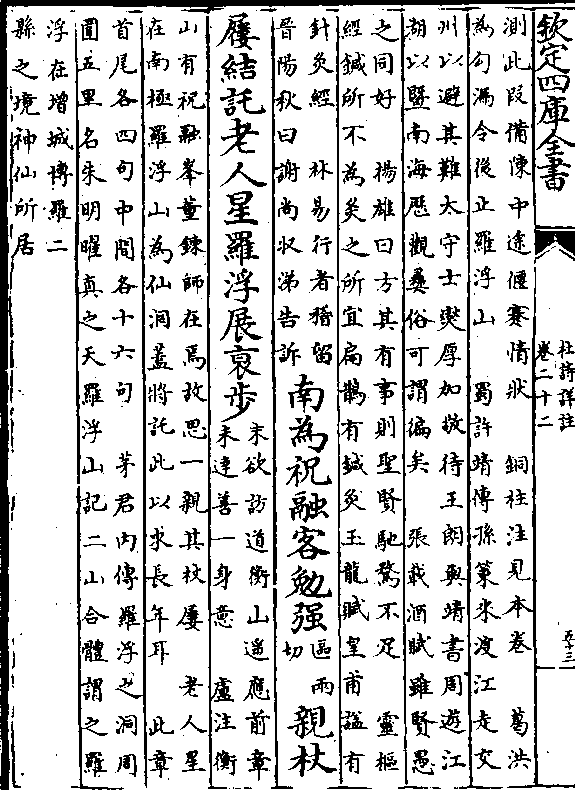 欽定四庫全書
杜詩詳註
卷二十二
五十三
測此段備陳中途偃蹇情狀　銅柱注見本卷　葛洪
為勾漏令後止羅浮山　蜀許靖傳孫策來渡江走交
州以避其難太守士燮厚加敬待王朗與靖書周遊江
湖以暨南海歷觀彛俗可謂徧矣　張載酒賦雖賢愚
之同好　揚雄曰方其有事則聖賢馳騖不足　靈樞
經鍼所不為灸之所宜扁鵲有鍼灸玉龍賦皇甫謐有
針灸經　林易行者稽留
晉陽秋曰謝尚收涕告訴
南為祝融客勉强
區兩
切
親杖
屨結託老人星羅浮展衰步
末欲訪道衡山遥應前章
未達善一身意　盧注衡
山有祝融峯董鍊師在焉故思一親其杖屨　老人星
在南極羅浮山為仙洞蓋將託此以求長年耳　此章
首尾各四句中間各十六句　茅君内傳羅浮之洞周
圍五里名朱明曜真之天羅浮山記二山合體謂之羅
浮在增城博羅二
縣之境神仙所居